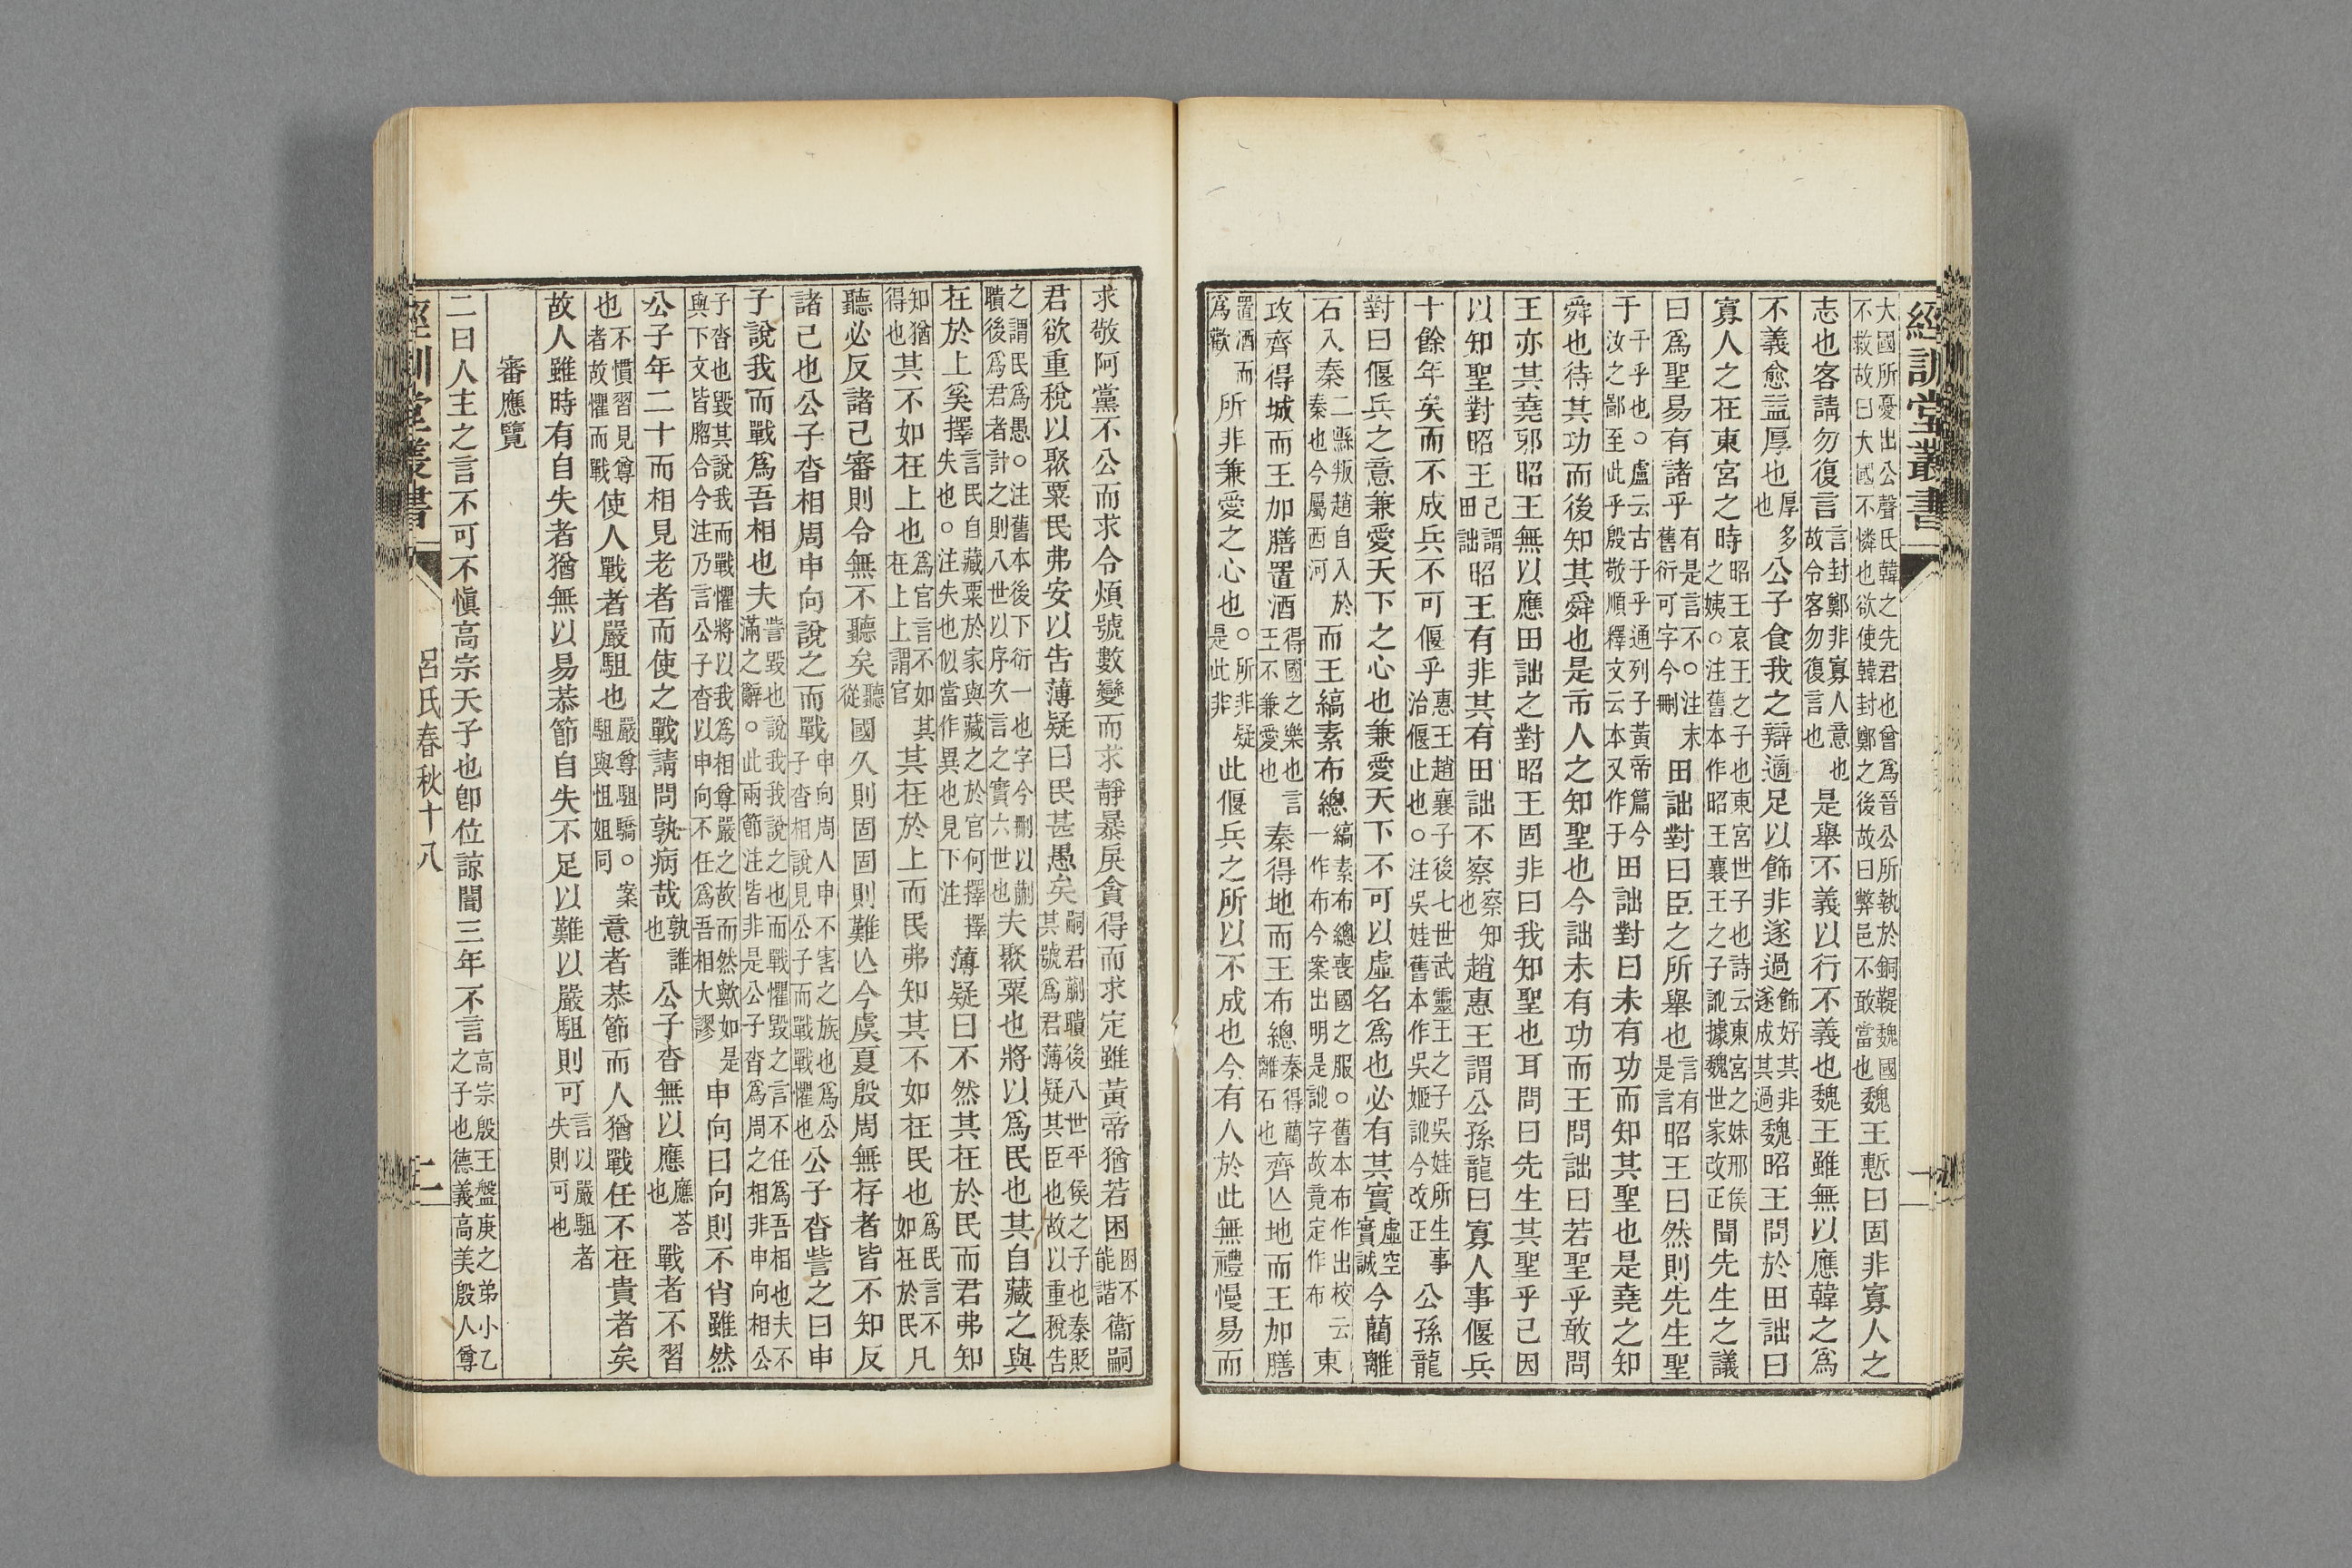 經訓堂叢書
一
大國所憂出公聲氏韓之先君也曾爲晉公所執於銅鞮魏國不救故曰大國不憐也欲使韓封鄭之後故曰弊邑不敢當也魏王慙曰固非寡人之
志也客請勿復言言封鄭非寡人意也故令客勿復言也是舉不義以行不義也魏王雖無以應韓之爲
不義愈益厚也厚多也公子食我之辯適足以飾非遂過飾好其非遂成其過魏昭王問於田詘曰
寡人之在東宮之時昭王哀王之子也東宮世子也詩云東宮之妹邢侯之姨○注舊本作昭王襄王之子訛據魏世家改正聞先生之議
曰爲聖易有諸乎有是言不○注末舊衍可字今刪田詘對曰臣之所舉也言有是言昭王曰然則先生聖
于于乎也○盧云古于乎通列子黃帝篇今汝之鄙至此乎殷敬順釋文云本又作于田詘對曰未有功而知其聖也是堯之知
舜也待其功而後知其舜也是市人之知聖也今詘未有功而王問詘曰若聖乎敢問
王亦其堯邪昭王無以應田詘之對昭王固非曰我知聖也耳問曰先生其聖乎己因
以知聖對昭王己謂田詘昭王有非其有田詘不察察知也趙惠王謂公孫龍曰寡人事偃兵
十餘年矣而不成兵不可偃乎惠王趙襄子後七世武靈王之子吳娃所生事治偃止也○注吳娃舊本作吳姬訛今改正公孫龍
對曰偃兵之意兼愛天下之心也兼愛天下不可以虛名爲也必有其實虛空實誠今藺離
石入秦二縣叛趙自入於秦也今屬西河而王縞素布總縞素布總喪國之服○舊本布作出校云一作布今案出明是訛字故竟定作布東
攻齊得城而王加膳置酒得國之樂也言王不兼愛也秦得地而王布總秦得藺離石也齊亾地而王加膳
置酒而爲歡所非兼愛之心也○所非疑是此非此偃兵之所以不成也今有人於此無禮慢易而
求敬阿黨不公而求令煩號數變而求靜暴戾貪得而求定雖黃帝猶若困困不能諧衞嗣
君欲重稅以聚粟民弗安以告薄疑曰民甚愚矣嗣君蒯聵後八世平侯之子也秦貶其號爲君薄疑其臣也故以重稅告之謂民爲愚○注舊本後下衍一也字今刪以蒯聵後爲君者計之則八世以序次言之實六世也夫聚粟也將以爲民也其自藏之與
在於上奚擇言民自藏粟於家與藏之於官何擇擇失也○注失也似當作異也見下注薄疑曰不然其在於民而君弗知
知猶得也其不如在上也爲官言不如其在上上謂官其在於上而民弗知其不如在民也爲民言不如在於民凡
聽必反諸己審則令無不聽矣聽從國久則固固則難亾今虞夏殷周無存者皆不知反
諸己也公子沓相周申向說之而戰申向周人申不害之族也爲公子沓相說見公子而戰戰懼也公子沓訾之曰申
子說我而戰爲吾相也夫訾毀也說我我說之也而戰懼毀之言不任爲吾相也夫不滿之辭○此兩節注皆非是公子沓爲周之相非申向相公子沓也毀其說我而戰懼將以我爲相尊嚴之故而然歟如是與下文皆脗合今注乃言公子沓以申向不任爲吾相大謬申向曰向則不肖雖然
公子年二十而相見老者而使之戰請問孰病哉孰誰也公子沓無以應應荅也戰者不習
也不慣習見尊者故懼而戰使人戰者嚴駔也嚴尊駔驕○案駔與怚姐同意者恭節而人猶戰任不在貴者矣
故人雖時有自失者猶無以易恭節自失不足以難以嚴駔則可言以嚴駔者失則可也
審應覽
二曰人主之言不可不愼高宗天子也卽位諒闇三年不言高宗殷王盤庚之弟小乙之子也德義高美殷人尊
經訓堂叢書
呂氏春秋十八
二